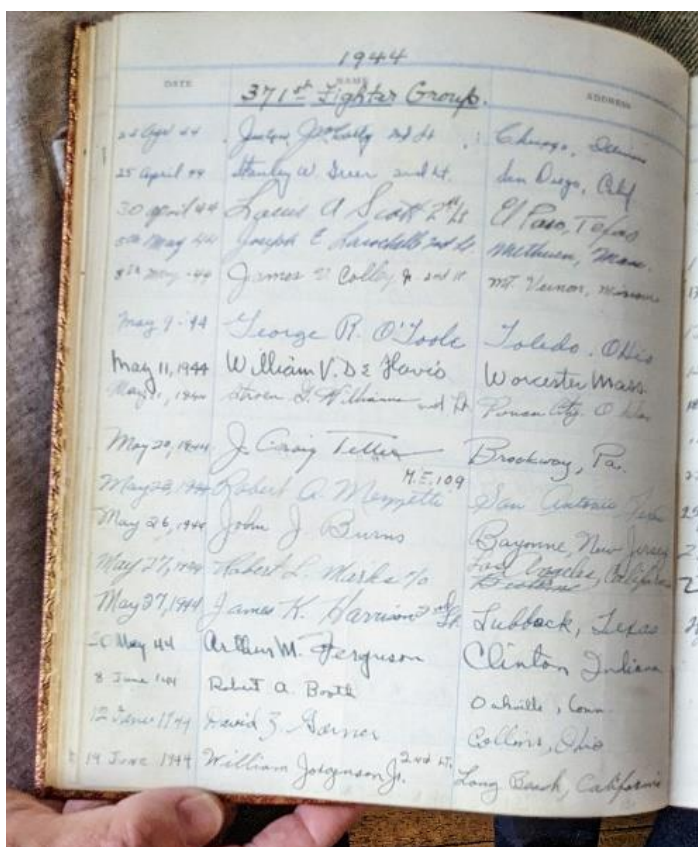 1944
DATE NAME ADDRESS
371st Fighter Group.
44 2nd Lt Chicago, Illinois
25 April 44 Stanley W. 2nd Lt. San Diego, Calif
30 april 44 Louis A Scott 2nd Lt El Paso, Texas
5th May 44 Joseph E Larochelle 2nd Lt. Methuen, Mass.
8th May - 44 James V Colley Jr 2nd Lt MT. Vernon, Missouri
May 9 - 44 George R. O'Toole Toledo, Ohio
May 11, 1944 William V. De Flavio Worcester Mass.
May 1944 Williams 2nd Lt Ponca City,
May 20, 1944 J. Craig Teller Brockway, Pa.
M.E. 109
May 1944 Robert A. San Antonio Texas
May 26, 1944 John J Burns Bayonne, New Jersey
May 27, 1944 Robert L. Marks Los Angeles, California
May 27, 1944 James K. Harrison 2nd Lt. Lubbock, Texas
May 44 Arthur M. Ferguson Clinton Indiana
8 June 44 Robert A. Booth Oakville, Conn
12 June 1944 David Z. Garner Collins, Ohio
14 June 1944 William Jorgenson Jr. 2nd LT. Long Beach, California